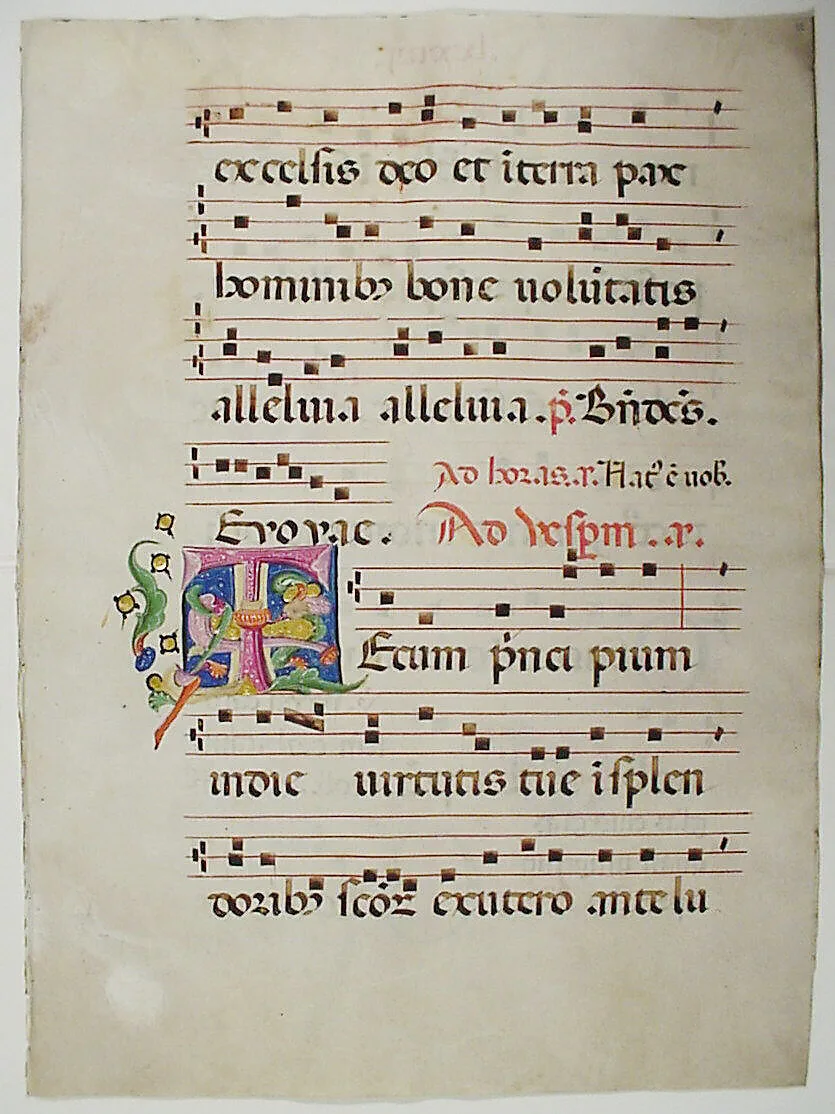 excelsis deo et ĩ terra pax
hominibꝰ bone uolũtatis
alleluia alleluia. p̃. Bñdc̃s.
Evovae. Ad horas. a. Nat᷒ ẽ nob.
Ad vesp̃m. a.
Tecum p̃nci pium
indie uirtutis tue ĩ splen
doribꝰ sc̃oꝝ exutero antelu